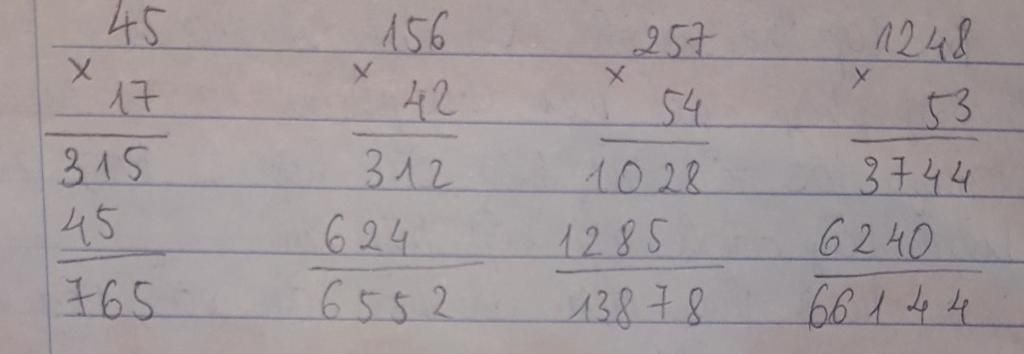 45 156 257 1248
× 17 × 42 × 54 × 53
315 312 1028 3744
45 624 1285 6240
765 6552 13878 66144